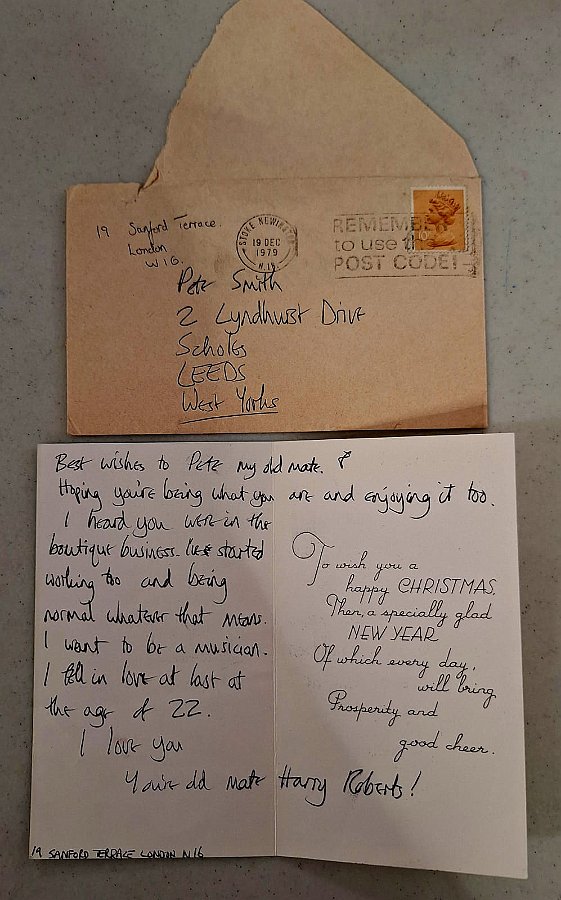 19 Sanford Terrace.
London
W16.
STOKE NEWINGTON
19 DEC
1979
N.16
REMEMBER
to use
POST CODE!
Pete Smith
2 Lyndhurst Drive
Scholes
LEEDS
West Yorks
Best wishes to Pete my old mate. &
Hoping you're being what you are and enjoying it too.
I heard you were in the
boutique business. I've started
working too and being
normal whatever that means.
I want to be a musician.
I fell in love at last at
the age of 22.
I love you
You're old mate Harry Roberts!
19 SANFORD TERRACE LONDON N16
To wish you a
happy CHRISTMAS,
Then, a specially glad
NEW YEAR
Of which every day,
will bring
Prosperity and
good cheer.